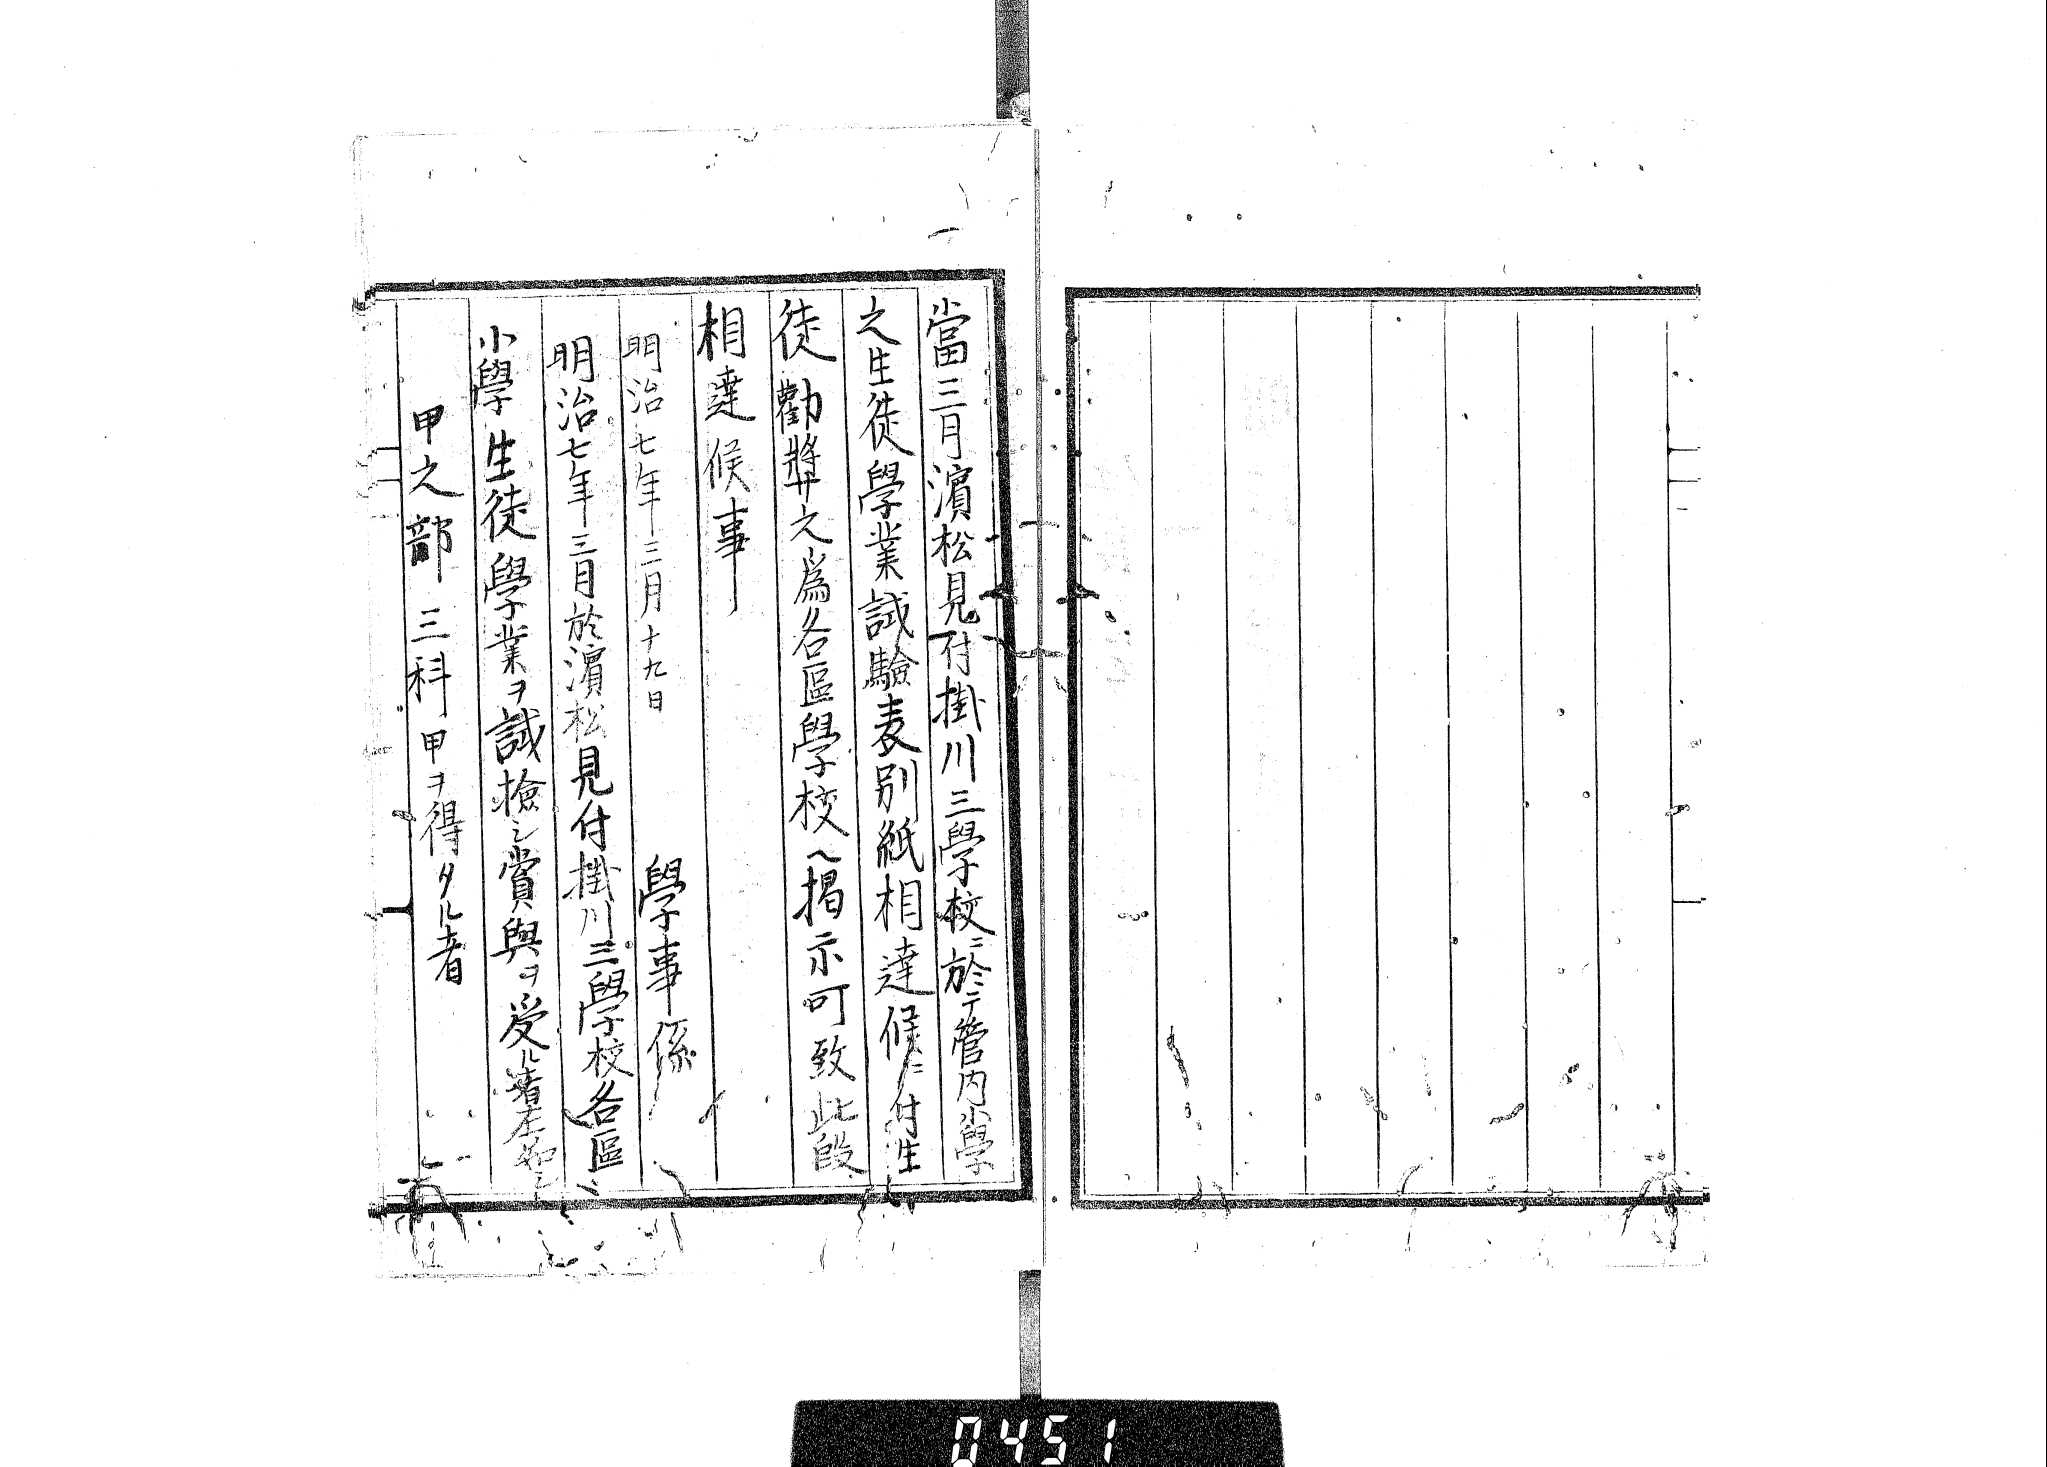 當三月濱松見付掛川三學校ニ於テ管内小學
之生徒學業試驗表別紙相達候ニ付生
徒勸奬之爲各區學校ヘ掲示可致此段
相達候事
明治七年三月十九日
學事係
明治七年三月於濱松見付掛川三學校各區ニ
小學生徒學業ヲ試検シ賞與ヲ受ル者左
甲之部 三科甲ヲ得タル者
0451